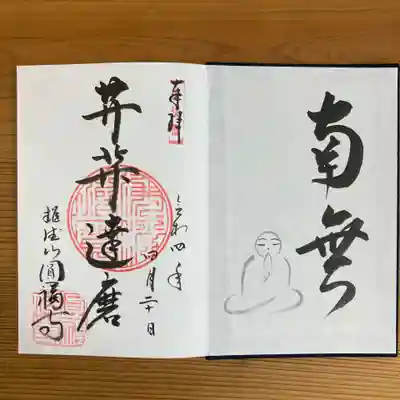 南無
奉拝
令和四年
四月二十日
菩提達磨
雄徳山圓福寺